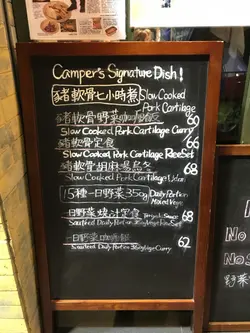 Camper's Signature Dish!
豬軟骨七小時煮 Slow Cooked Pork Cartilage
豬軟骨野菜咖喱飯 60
Slow Cooked Pork Cartilage Curry
豬軟骨定食 66
Slow Cooked Pork Cartilage Rice Set
豬軟骨胡麻場烏冬 68
Slow Cooked Pork Cartilage Udon
15種一日野菜350g Daily Portion Mixed Veges
一日野菜 定食 Sauce 68
Sauteed Daily Portion Rice Set
一日野菜咖喱飯 62
Sauteed Daily Portion Vege Curry
No
No
野菜